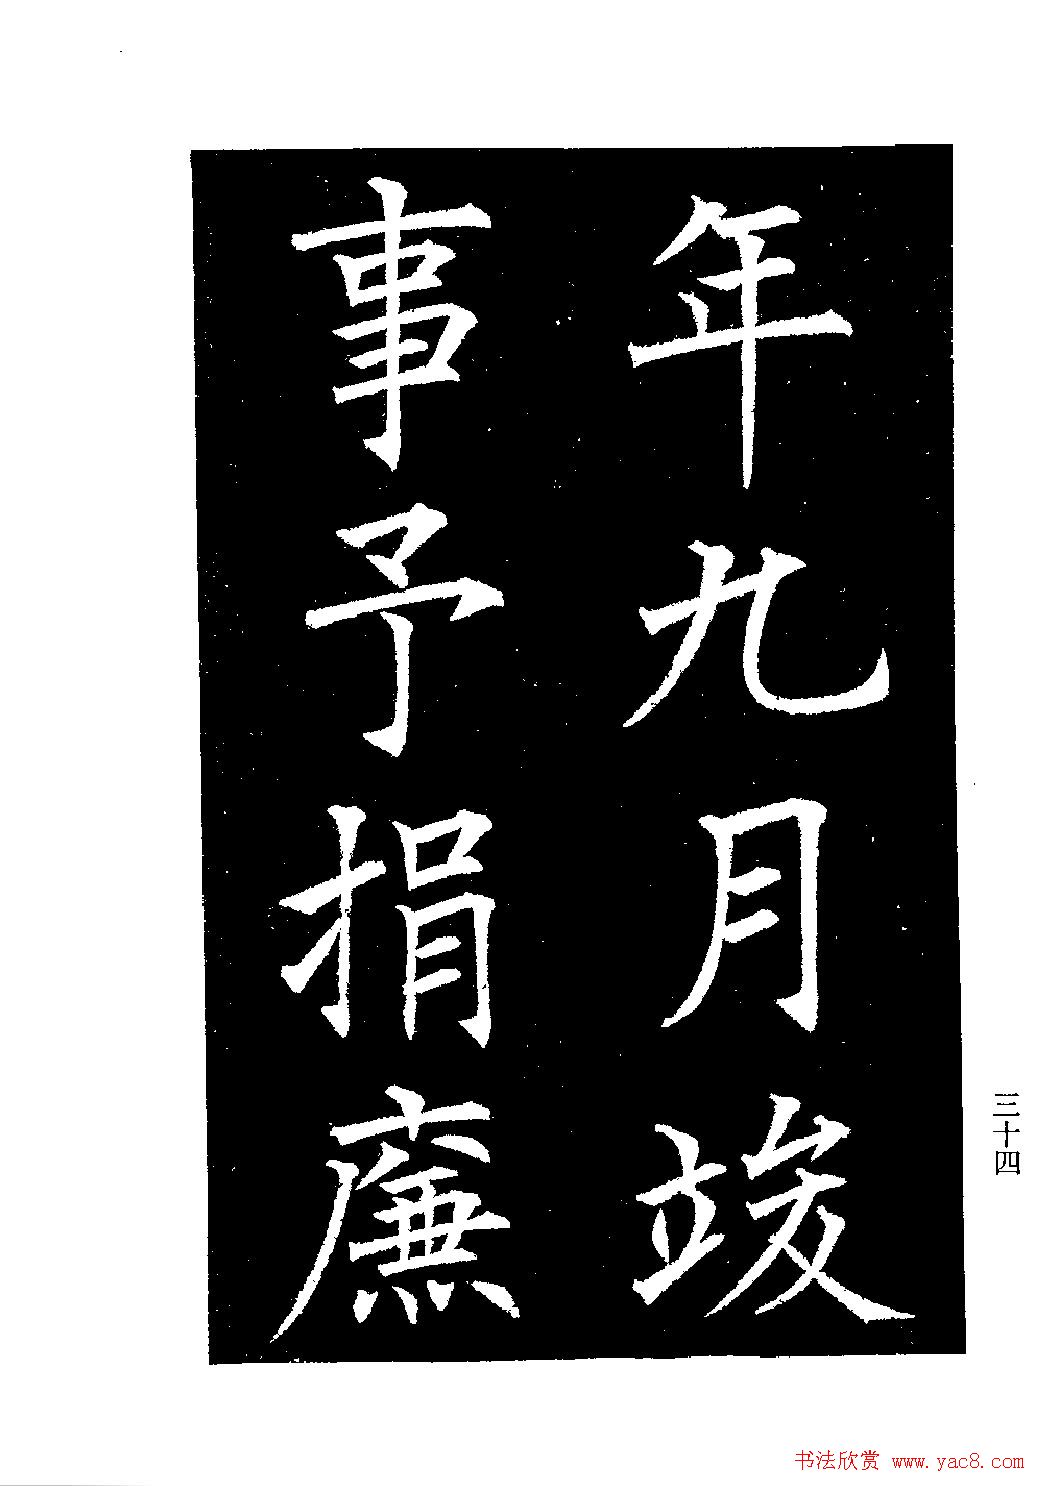 年九月竣
事予捐廉
三十四
书法欣赏 www.yac8.com